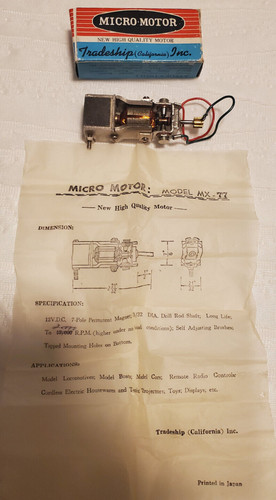 MICRO-MOTOR
NEW HIGH QUALITY MOTOR
Tradeship (California) Inc.
MICRO MOTOR: MODEL MX-77
New High Quality Motor
DIMENSION:
SPECIFICATION:
12V.D.C. 7-Pole Permanent Magnet, DIA. Drill Rod Shaft, Long Life,
To R.P.M. (higher under conditions); Self Adjusting Brushes;
Tapped Mounting Holes on Bottom.
APPLICATIONS:
Model Locomotives; Model Boats; Model Cars; Remote Radio Controls;
Cordless Electric Housewares and Tools; Projectors, Toys; Displays, etc.
Tradeship (California) Inc.
Printed in Japan